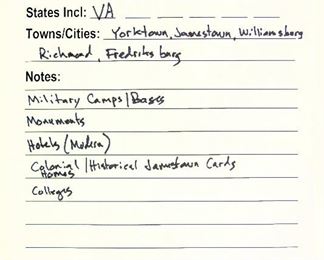 States Incl: VA
Towns/Cities: Yorktown, Jamestown, Williamsburg
Richmond, Fredriksburg
Notes:
Military Camps/Bases
Monuments
Hotels (Modern)
Colonial Homes/Historical Jamestown Cards
Colleges